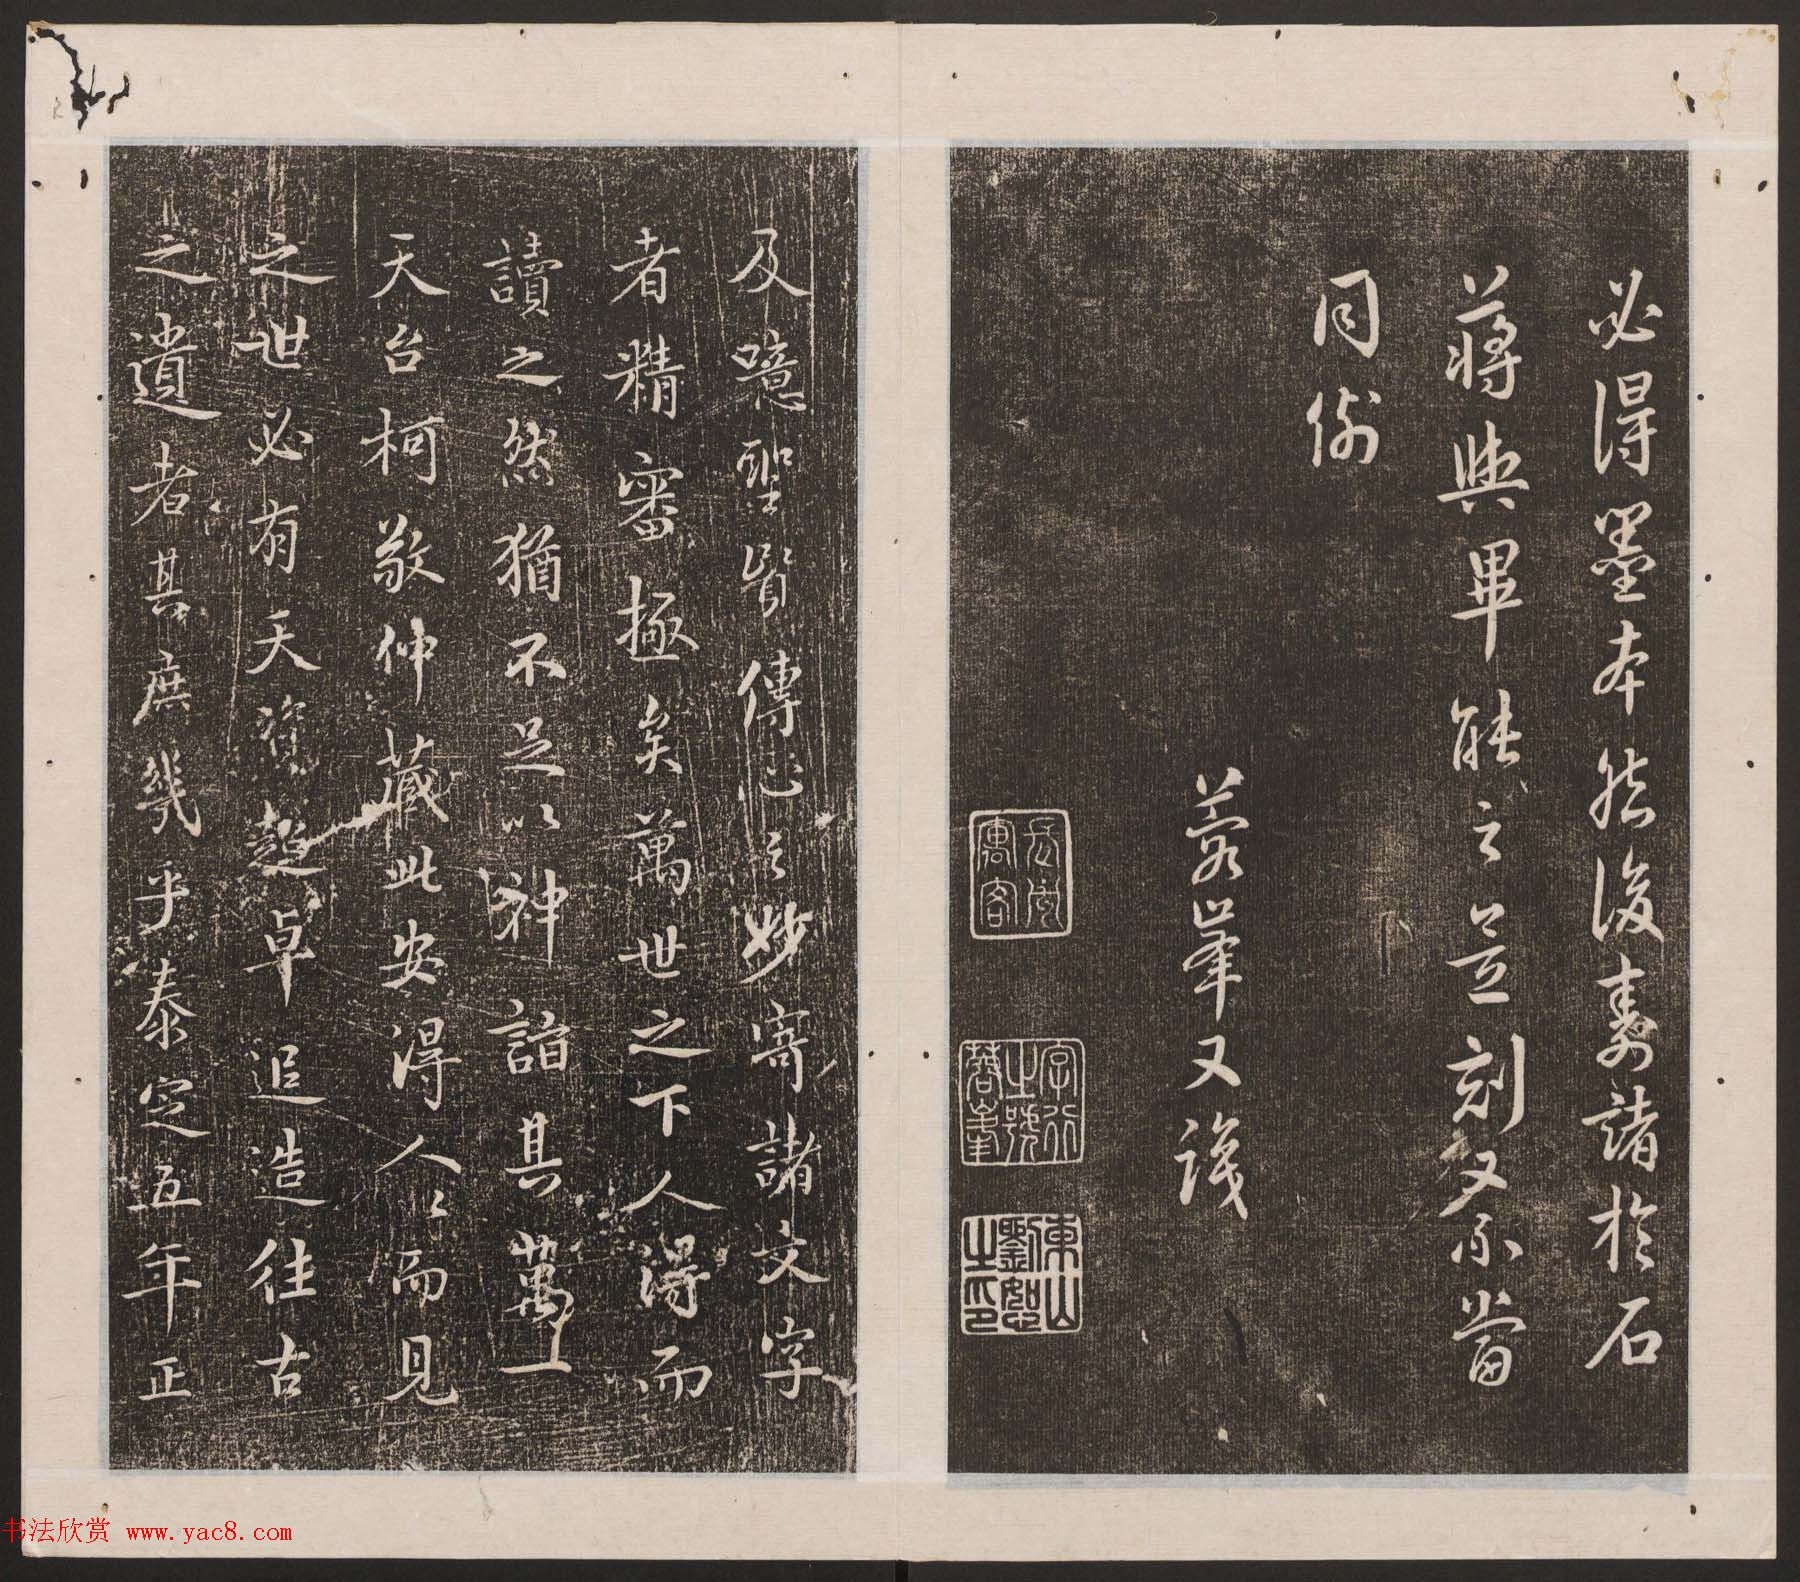 必得墨本然後壽諸於石
蔣與畢能之刻又不當
同
蓉峯又識
寓客
字行之號蓉峯
東山劉恕之印
及噫聖賢傳心之妙寄諸文字
者精審極矣萬世之下人得而
讀之然猶不足以神詣其萬一
天台柯敬仲藏此安得人人而見
之世必有天資超卓追造往古
之遺者其庶幾乎泰定五年正
书法欣赏 www.yac8.com